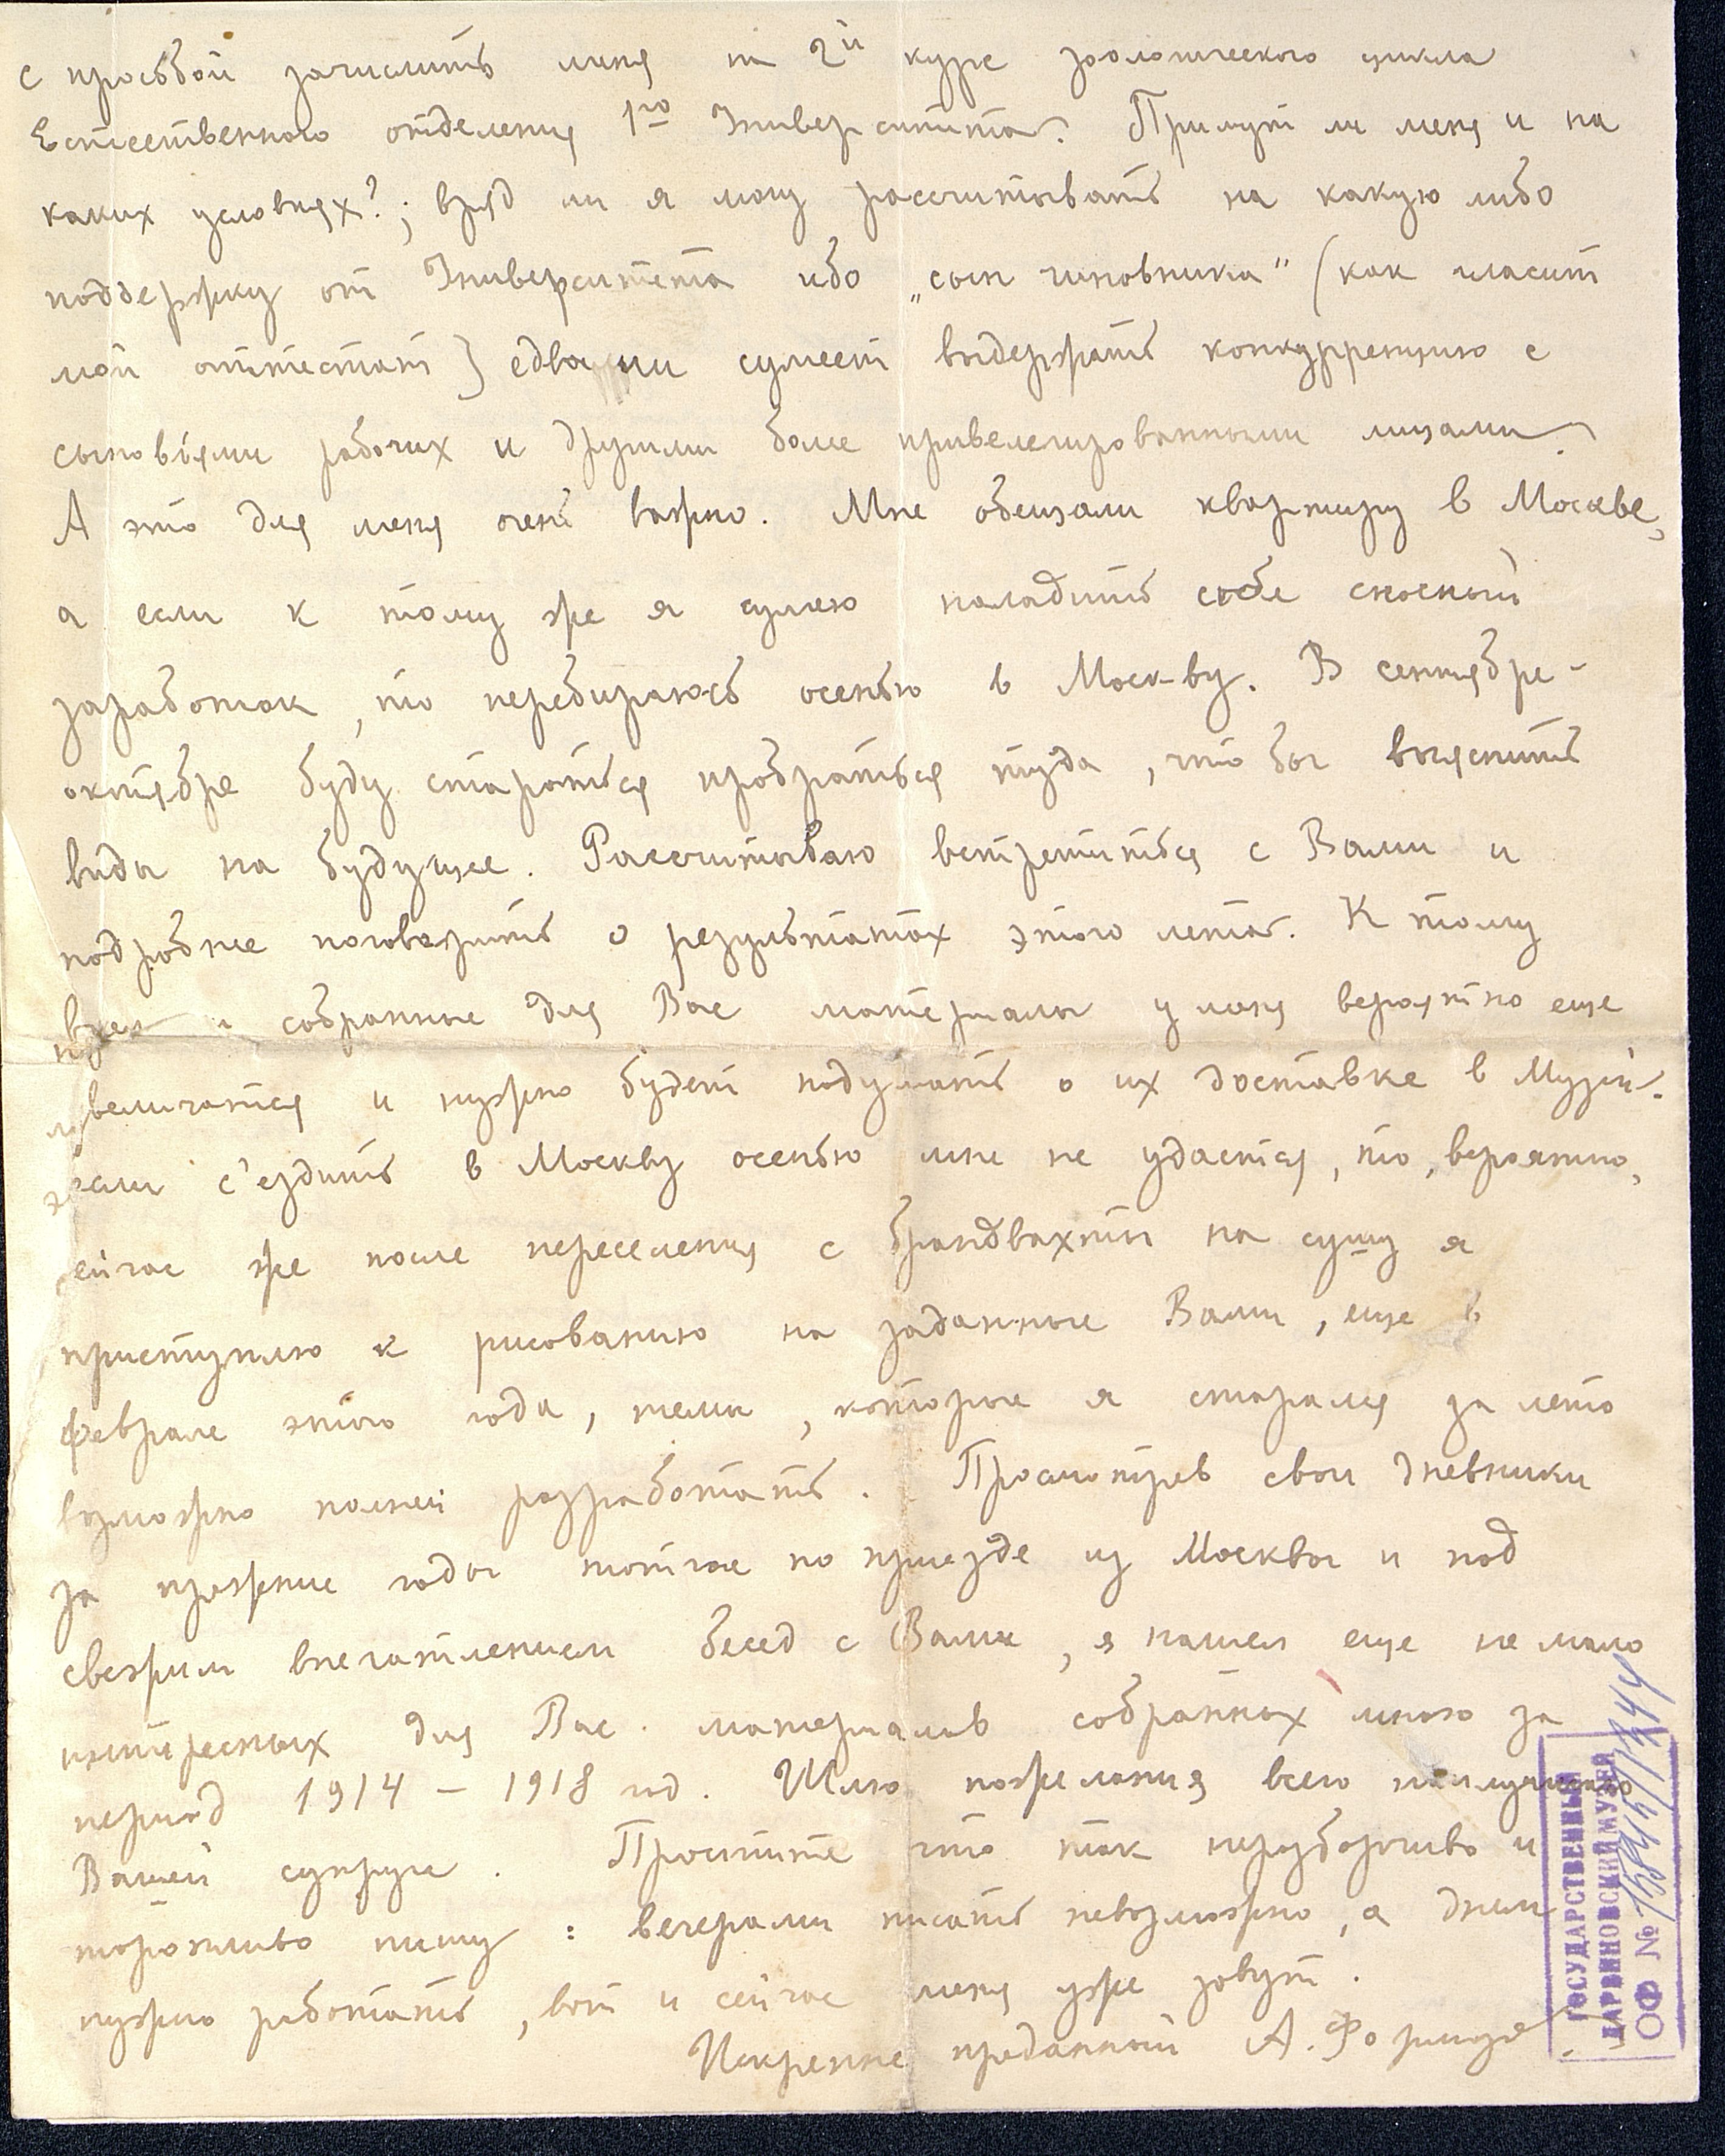 с просьбой зачислить меня на 2й курс зоологического цикла
Естественного отделения 1го Университета. Примут ли меня и на
каких условиях?; вряд ли я могу рассчитывать на какую либо
поддержку от Университета ибо „сын чиновника" (как гласит
мой аттестат) едва ли сумеет выдержать конкурренцию с
сыновьями рабочих и другими более привелегированными лицами.
А это для меня очень важно. Мне обещали квартиру в Москве,
а если к тому же я сумею наладить себе сносный
заработок, то перебираюсь осенью в Москву. В сентябре -
октябре буду стараться пробраться туда, что бы выяснить
виды на будущее. Рассчитываю встретиться с Вами и
подробнее поговорить о результатах этого лета. К тому
время и собранные для Вас материалы у меня вероятно еще
увеличатся и нужно будет подумать о их доставке в Музей.
Если с'ездить в Москву осенью мне не удастся, то, вероятно,
сейчас же после переселения с брандвахты на сушу я
приступлю к рисованию на заданные Вами, еще в
феврале этого года, темы, которые я старался за лето
возможно полней разработать. Просмотрев свои дневники
за прежние годы тотчас по приезде из Москвы и под
свежим впечатлением бесед с Вами, я нашел еще не мало
интересных для Вас материалов собранных мною за
период 1914 – 1918 год. Шлю пожелания всего наилучшего
Вашей супруге. Простите что так неразборчиво и
торопливо пишу: вечерами писать невозможно, а днем
нужно работать, вот и сейчас меня уже зовут.
Искренне преданный А. Формозов
ГОСУДАРСТВЕННЫЙ
ДАРВИНОВСКИЙ МУЗЕЙ
ОФ №